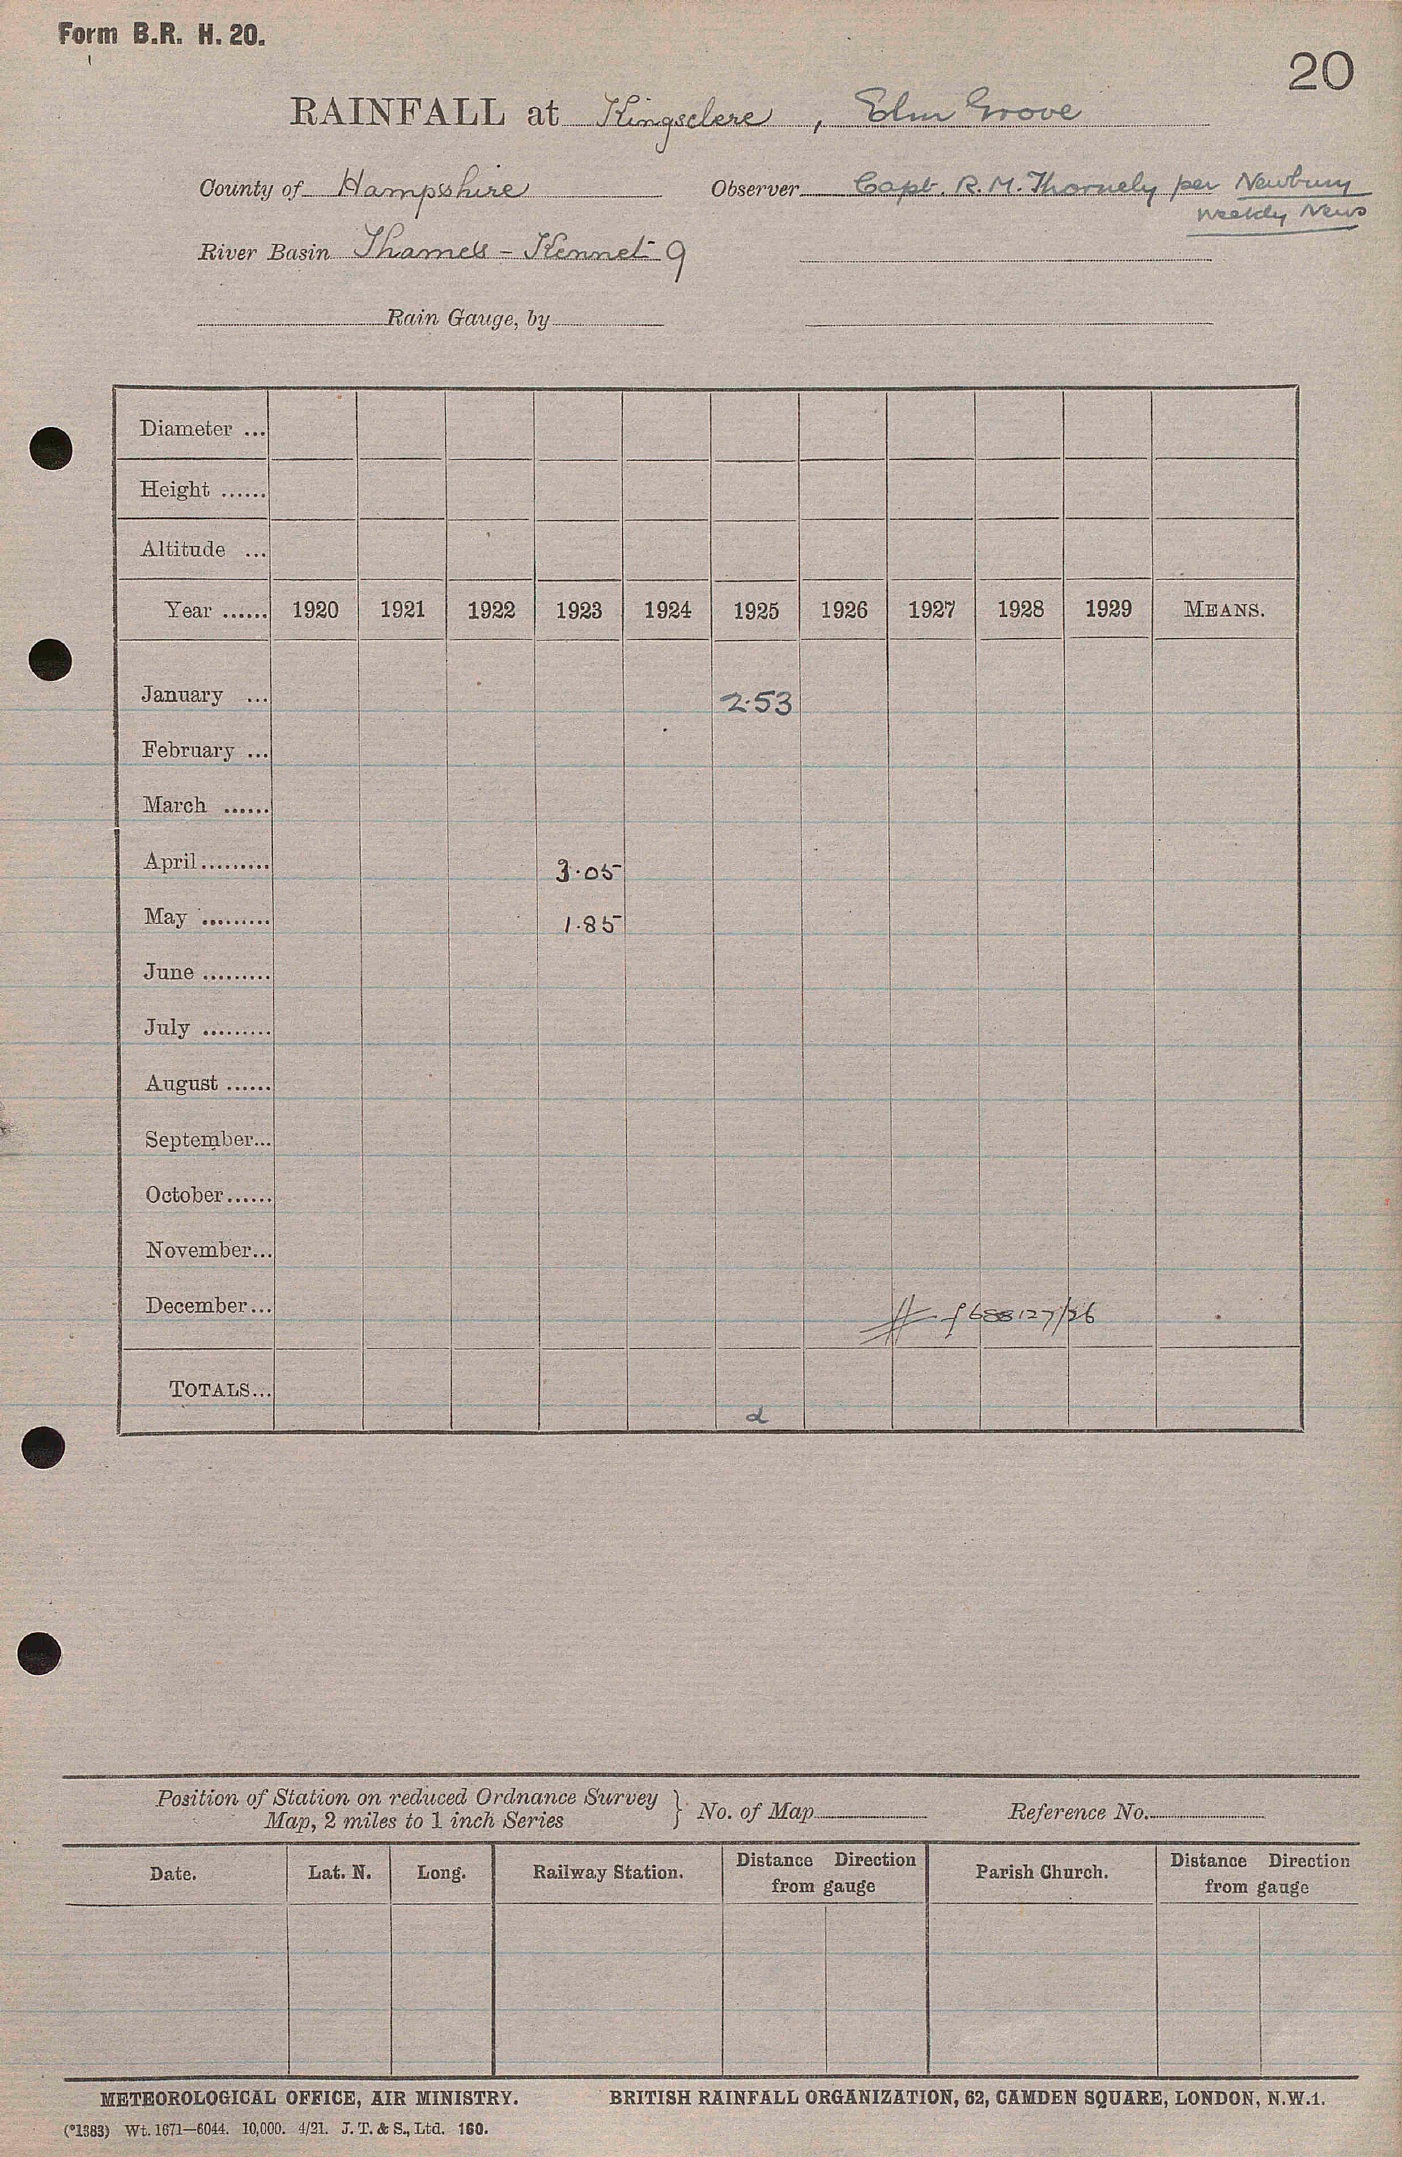 Form B.R. H. 20.
20
RAINFALL at Kingsclere, Elm Grove
County of Hampshire Observer Capt. R. M. Thornely per Newbury
Weekly News
River Basin Thames - Kennet 9
Rain Gauge, by
Diameter ...
Height ......
Altitude ...
Year ...... 1920 1921 1922 1923 1924 1925 1926 1927 1928 1929 MEANS.
January ... 2.53
February ...
March ......
April......... 3.05
May ......... 1.85
June .........
July .........
August ......
September...
October......
November...
December...
TOTALS...
Position of Station on reduced Ordnance Survey
Map, 2 miles to 1 inch Series } No. of Map Reference No.
Date. Lat. N. Long. Railway Station. Distance Direction from gauge Parish Church. Distance Direction from gauge
METEOROLOGICAL OFFICE, AIR MINISTRY. BRITISH RAINFALL ORGANIZATION, 62, CAMDEN SQUARE, LONDON, N.W.1.
(*1383) Wt. 1671—6044. 10,000. 4/21. J. T. & S., Ltd. 160.